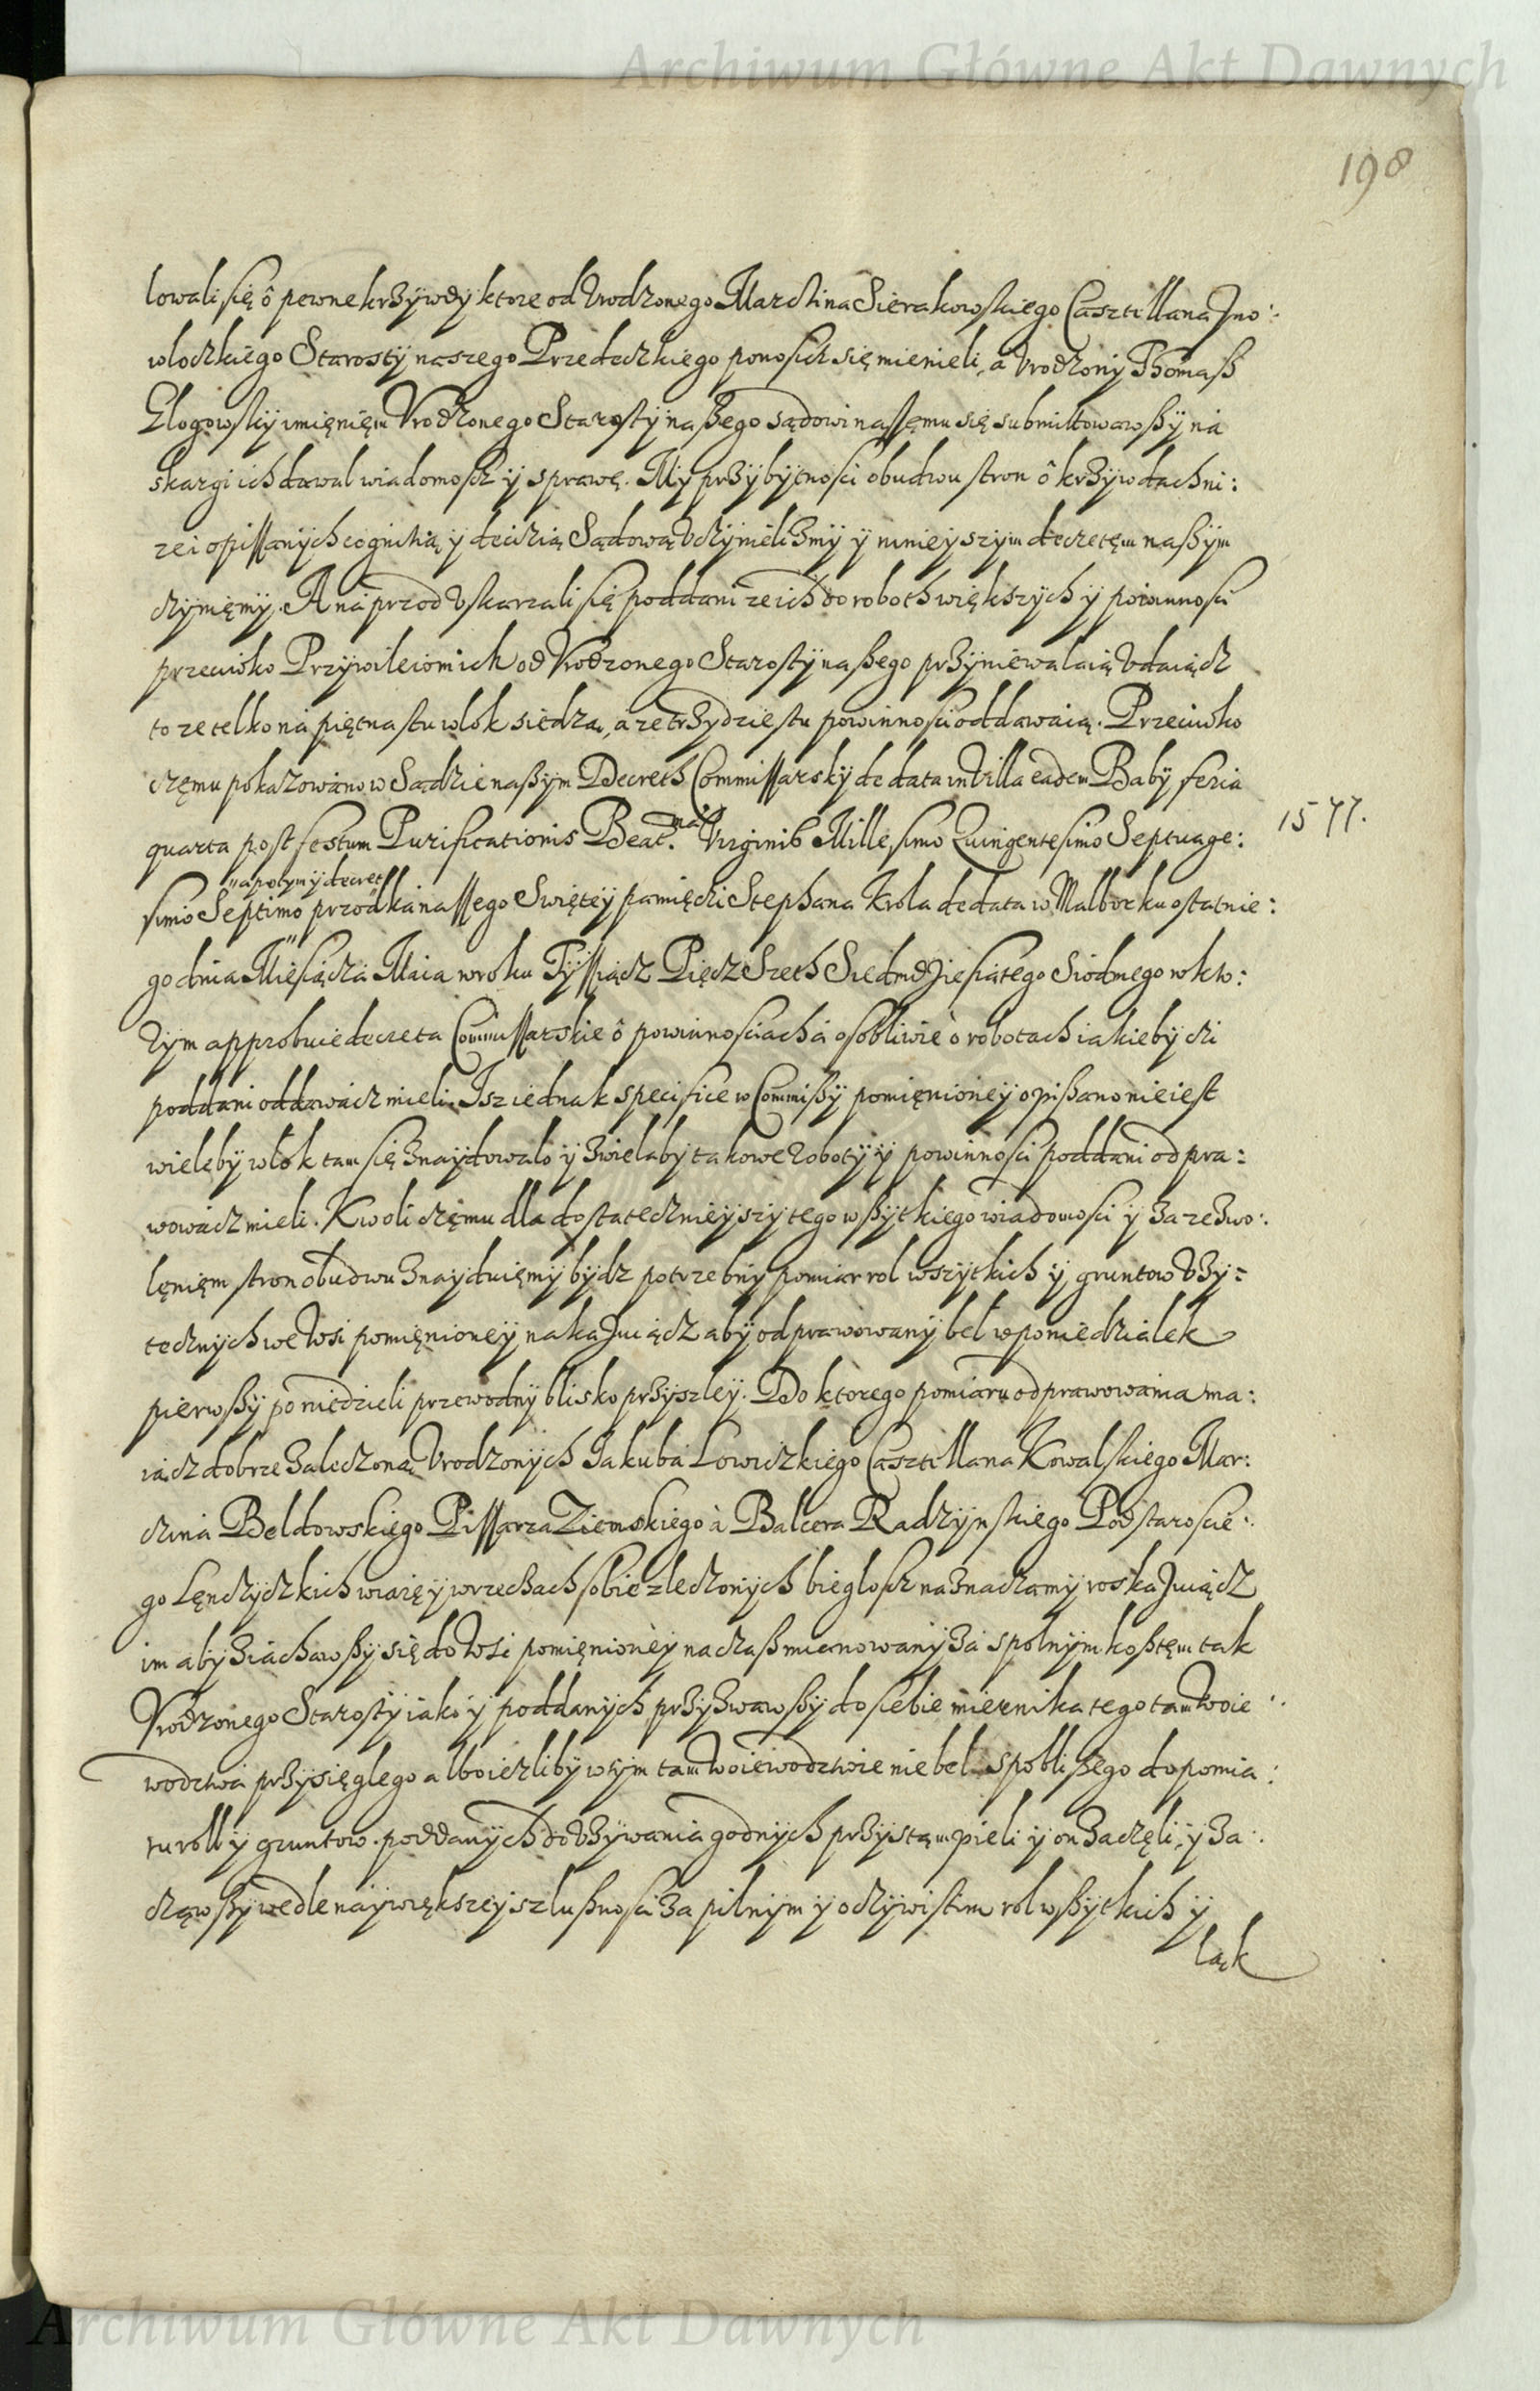 Archiwum Główne Akt Dawnych
198
lowali się ô pewne krzÿwdÿ ktore od Urodzonego Marczina Sierakowskiego Casztellana Jno:
wloczkiego Starostÿ naszego Przedeczkiego ponosicz się mienieli, a Urodzonÿ Thomaß
Glogowskÿ imięnięm Urodzonego Starostÿ naßego sądowi nassęmu się submittowawßÿ na
skargi ich dawal wiadomoscz ÿ sprawę. Mÿ przÿ bÿtnosci obudwu stron ô krzÿwdach ni:
zei opissanÿch cognitią ÿ decizią Sądową uczÿnielizmÿ ÿ ninieÿszÿm decretęm naßÿm
czÿnięmÿ. A na przod uskarzali się poddani ze ich do roboth większych ÿ powinnosci
przeciwko Przÿwileiom ich od Urodzonego Starostÿ naßego przÿniewalaią udaiącz
to ze telko na piętnastu wlok siedzą, a ze trzÿdziestu powinnosci oddawaią. Przeciwko
częmu pokazowano w Sądzie naßÿm Decreth Commissarskÿ de data in villa eadem Babÿ feria
quarta post festum Purificationis Beat. mæ Virginis Millesimo Quingentesimo Septuage:
1577.
" a potÿm ÿ decret
simo Septimo " przodka nassego Swiętej pamięczi Stephana Krola de data w Malborku ostatnie:
go dnia Miesiącza Maia w roku Tÿssiącz Pięcz Seth Siedmdziesiątego Siodmego w kto:
rÿm approbuie decreta Commissarskie ô powinnosciach a osobliwie o robotach iakie bÿ czi
poddani oddawacz mieli. Isz iednak specifice w Commißÿ pomięnioneÿ opißano nie iest
wielebÿ wlok tam się znaÿdowalo ÿ z wiela bÿ takowe robotÿ ÿ powinnosci poddani odpra:
wowacz mieli. Kwoli częmu dla dostatecznieÿszÿ tego wßÿtkiego wiadomosci ÿ za zezwo:
lęnięm stron obudwu znaÿduięmÿ bÿdz potrzebnÿ pomiar rol wszÿtkich ÿ gruntow uzÿ:
tecznÿch we wsi pomięnioneÿ nakazuiącz abÿ odprawowanÿ bel w poniedzialek
pierwßÿ po niedzieli przewodnÿ blisko przÿszleÿ. Do ktorego pomiaru odprawowania ma:
iącz dobrze zaleczoną Urodzonÿch Jakuba Lowiczkiego Casztellana Kowalskiego Mar:
czina Beldowskiego Pissarza Ziemskiego a Balcera Radzÿnskiego Podstaroscie:
go Lęnczÿczkich wiarę ÿ w rzeczach sobie zleczonÿch bieglosc naznaczamÿ roskazuiącz
im abÿ ziachawßÿ się do wsi pomięnioneÿ na czaß mianowanÿ za spolnÿm kosztęm tak
Urodzonego Starostÿ iako ÿ poddanÿch, przÿzwawßÿ do siebie miernika tego tam Woie:
wodztwa przÿsięglego albo iezlibÿ w tÿm tam Woiewodztwie nie bel s pobliszego do pomia:
ru roll ÿ gruntow poddanÿch do uzÿwania godnÿch przÿstąmpieli ÿ on zaczęli, ÿ za:
cząwßÿ wedle naÿwiększeÿ szlußnosci za pilnÿm ÿ oczÿwistim rol wßÿtkich ÿ
ląk
Archiwum Główne Akt Dawnych